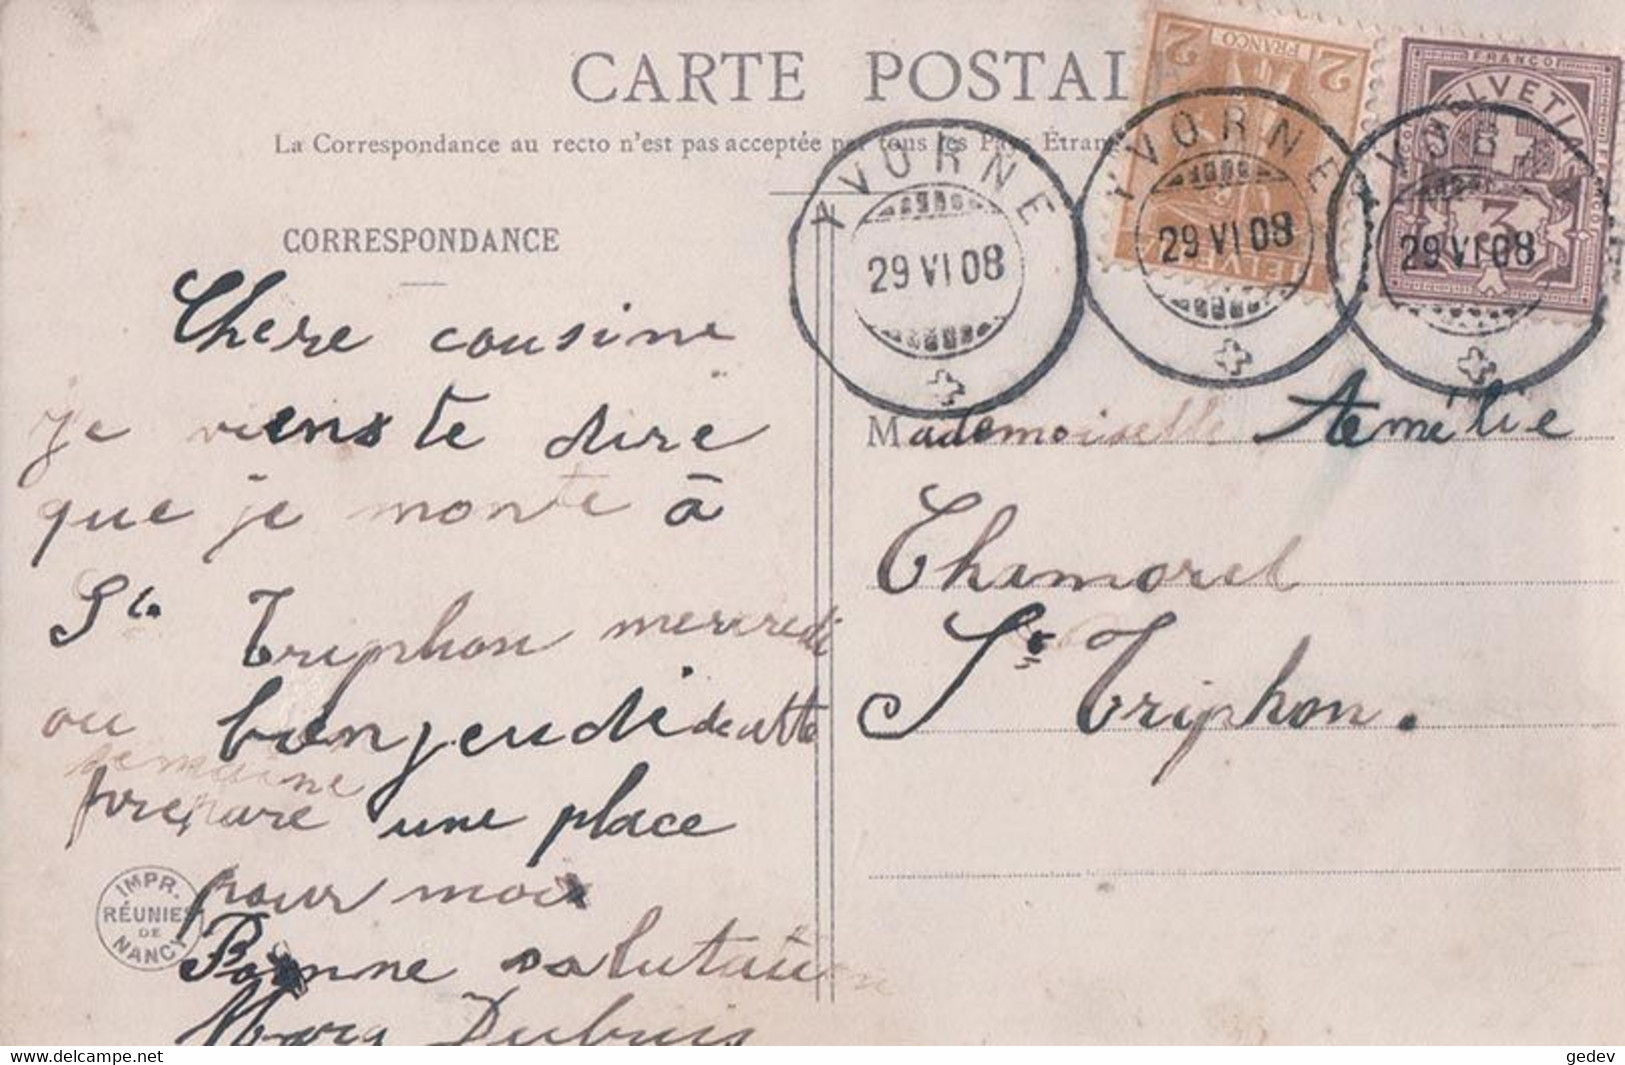 CARTE POSTAL
La Correspondance au recto n'est pas acceptée par tous les Pays Étran
2 FRANCO 2
HELVE
FRANCO
HELVETIA
3
YVORNE
29 VI 08
YVORNE
29 VI 08
YVOR
29 VI 08
CORRESPONDANCE
Chere cousine
je viens te dire
que je monte à
St Triphon mercredi
ou bien jeudi de cette
semaine
prepare une place
pour moi
Bonne salutation
Marg Dubuis
Mademoiselle Aemélie
Thamorel
St Triphon.
IMPR.
RÉUNIES
DE
NANCY
www.delcampe.net
gedev